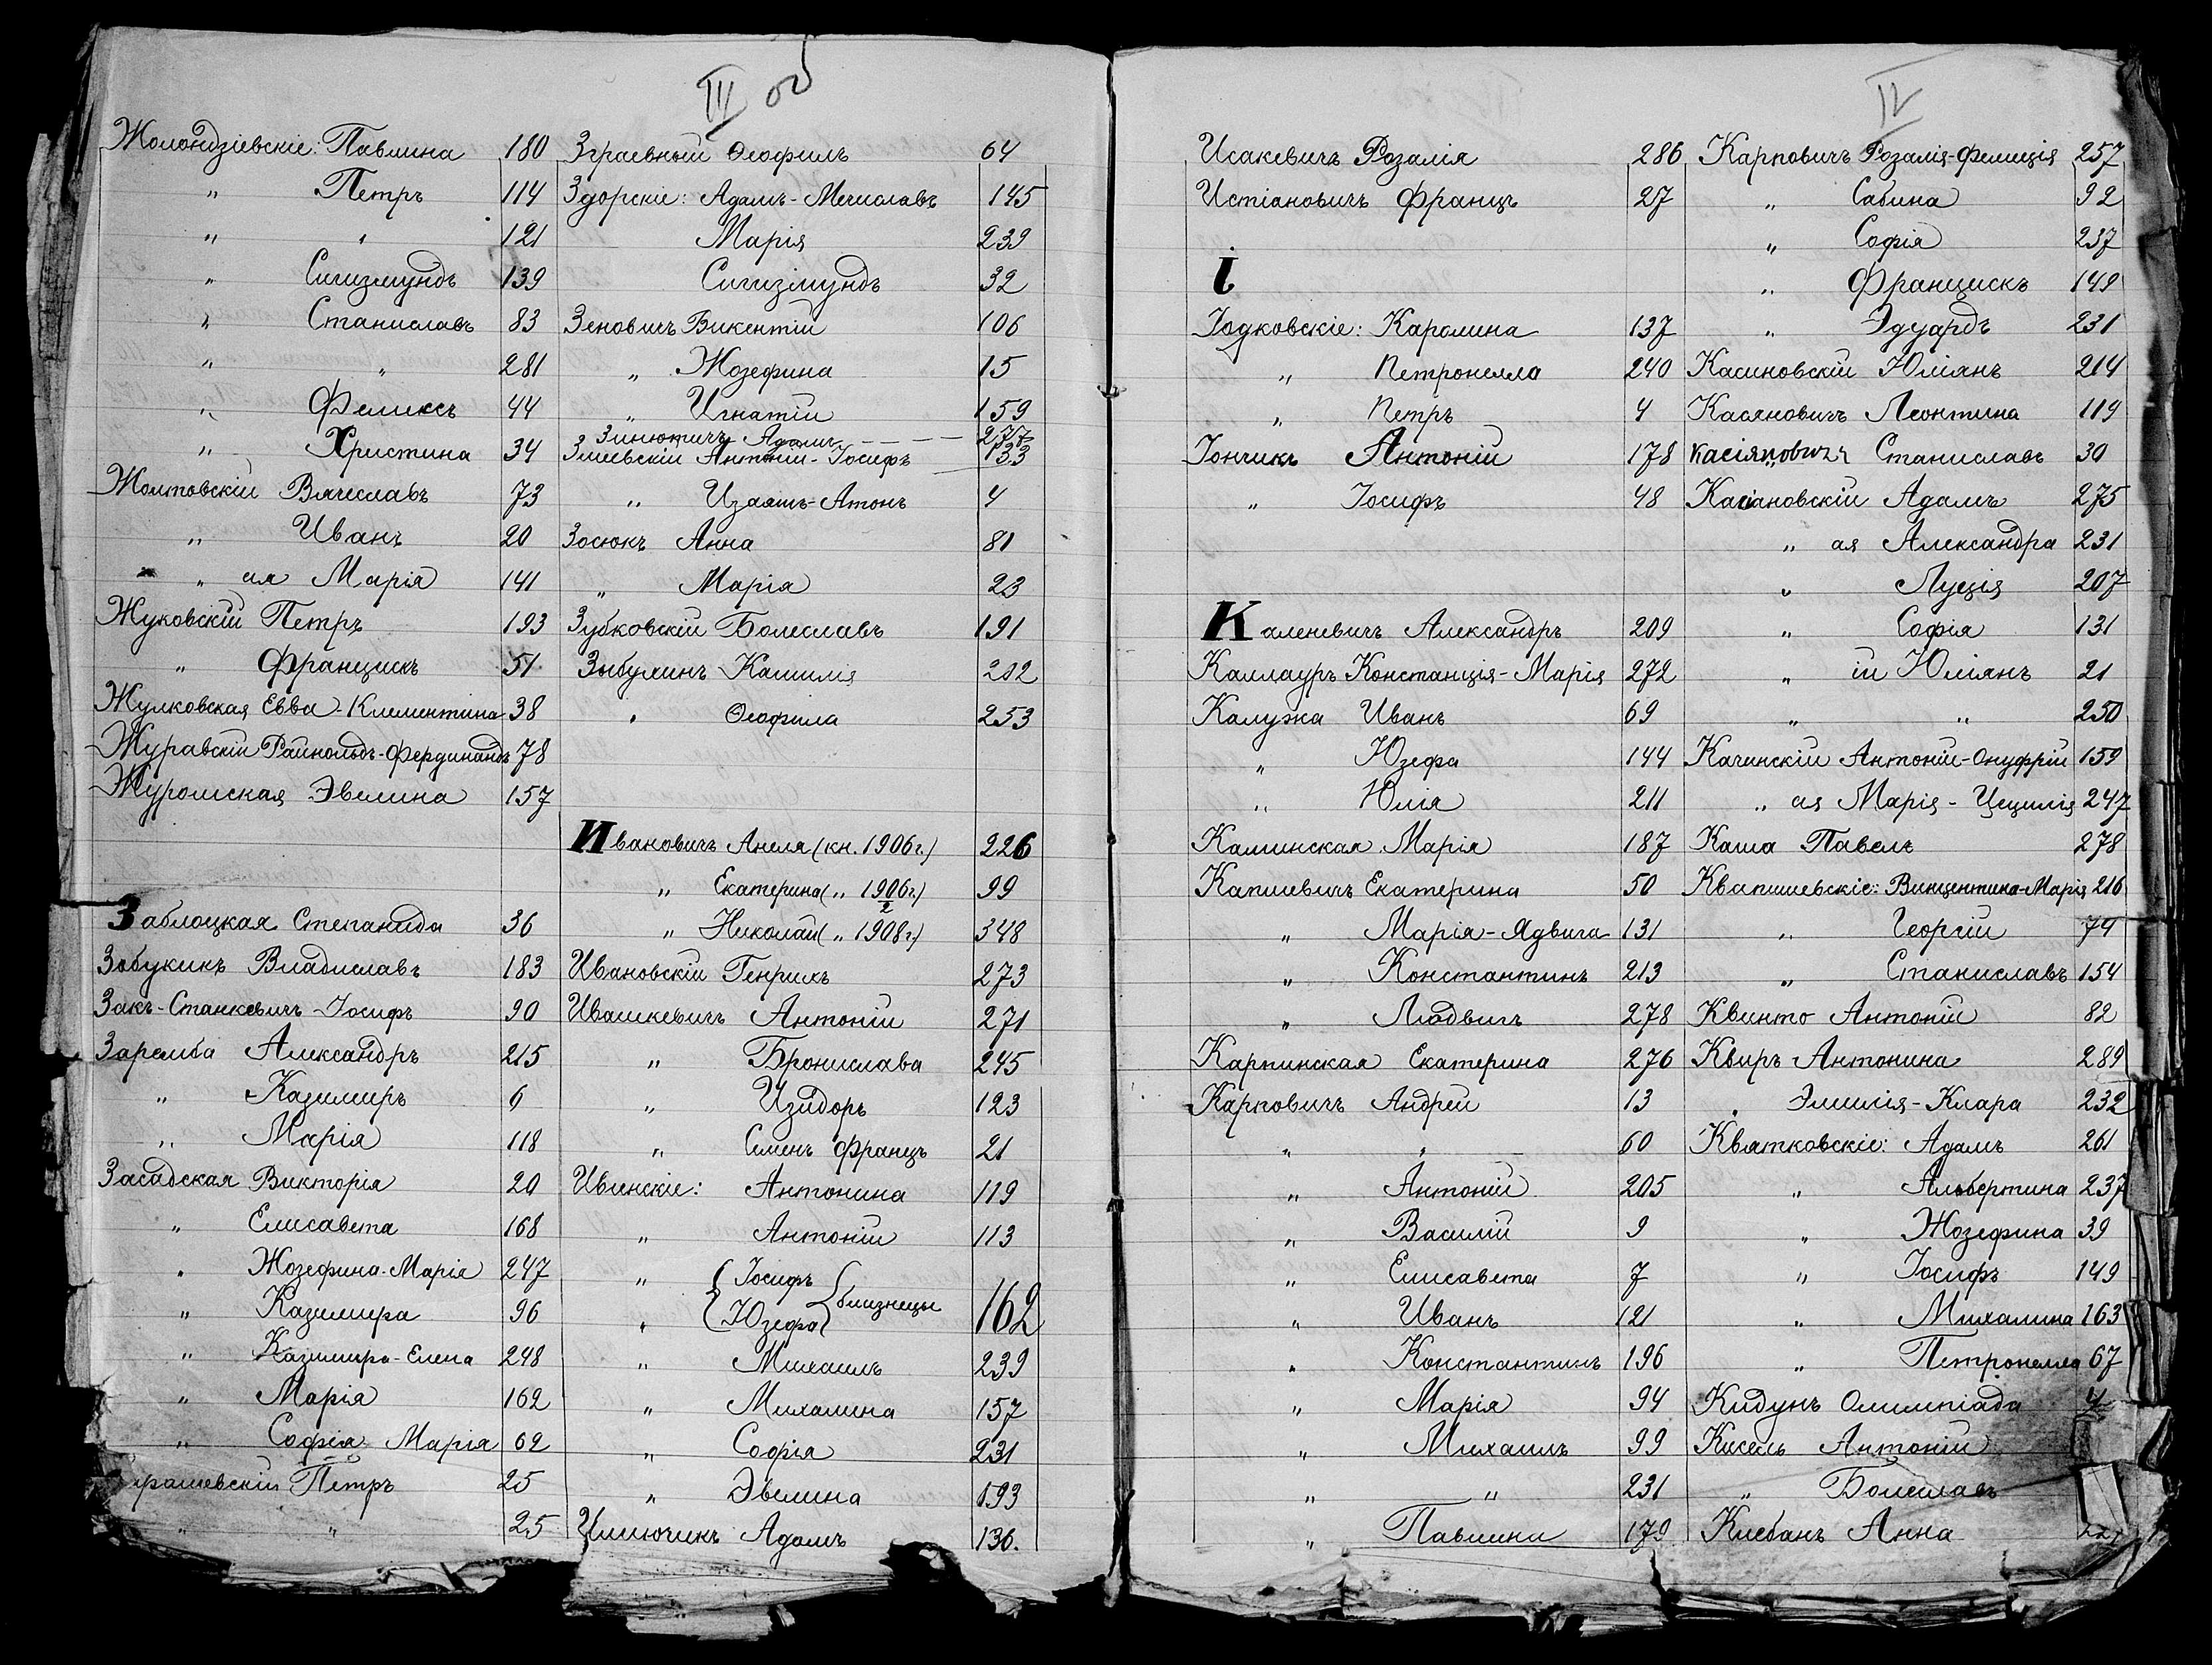 III об
Жолондзіевскіе: Павлина 180
" Петръ 114
" " 121
" Сигизмундъ 139
" Станиславъ 83
" " 281
" Феликсъ 44
" Христина 34
Жолтовскій Вячеславъ 73
" Иванъ 20
" ая Марія 141
Жуковскій Петръ 193
" Францискъ 51
Жулковская Евва-Клементина 38
Журавскій Райнольдъ-Фердинандъ 78
Журомская Эвелина 157
Заблоцкая Степанида 36
Забукикъ Владиславъ 183
Закъ-Станкевичъ-Іосифъ 90
Заремба Александръ 215
" Казимиръ 6
" Марія 118
Засадская Викторія 20
" Елисавета 168
" Жозефина-Марія 247
" Казимира 96
" Казимира-Елена 248
" Марія 162
" Софія Марія 62
Петръ 25
" " 25
Зграевный Ѳеофилъ 64
Здорскіе: Адамъ-Мечиславъ 145
Марія 239
Сигизмундъ 32
Зеновичъ Викентій 106
" Жозефина 15
" Игнатій 159
Зинютичъ Адамъ - - - - 277
Змиевскій Антоній-Іосифъ 133
" Изаяшъ-Атонъ 4
Зосюкъ Анна 81
" Марія 23
Зубковскій Болеславъ 191
Зыбулинъ Камилія 202
" Ѳеофила 253
Ивановичъ Анеля (кн. 1906 г.) 226
" Екатерина („ 1906/2 г.) 99
" Николай („ 1908 г.) 348
Ивановскій Генрихъ 273
Ивашкевичъ Антоній 271
" Бронислава 245
" Изидоръ 123
" Семенъ Францъ 21
Ивинскіе: Антонина 119
" Антоній 113
" { Іосифъ } близнецы 162
" { Юзефа }
" Михаилъ 239
" Михалина 157
" Софія 231
" Эвелина 193
Илиючикъ Адамъ 136.
IV
Исакевичъ Розалія 286
Истіановичъ Францъ 27
І
Іодковскіе: Каролина 137
" Петронелла 240
" Петръ 4
Іончикъ Антоній 178
" Іосифъ 48
Каленевичъ Александръ 209
Каллауръ Констанція-Марія 272
Калужа Иванъ 69
" Юзефа 144
" Юлія 211
Каминская Марія 187
Капшевичъ Екатерина 50
" Марія-Ядвига 131
" Константинъ 213
" Людвигъ 278
Карпинская Екатерина 276
Карповичъ Андрей 13
" " 60
" Антоній 205
" Василій 9
" Елисавета 7
" Иванъ 121
" Константинъ 196
" Марія 94
" Михаилъ 99
" " 231
" Павлина 179
Карповичъ Розалія-Фелиція 257
" Сабина 92
" Софія 237
" Францискъ 149
" Эдуардъ 231
Касиновскій Юліянъ 214
Касяновичъ Леонтина 119
Касіяновичъ Станиславъ 30
Касіановскій Адамъ 275
" ая Александра 231
" Луція 207
" Софія 131
" ій Юліянъ 21
" " 250
Качинскій Антоній-Онуфрій 159
" ая Марія-Цецилія 247
Каша Павелъ 278
Квапишевскіе: Винцентина-Марія 216
" Георгій 74
" Станиславъ 154
Квинто Антоній 82
Квиръ Антонина 289
" Эмилія-Клара 232
Квятковскіе: Адамъ 261
" Альбертина 237
" Жозефина 39
" Іосифъ 149
" Михалина 163
" Петронелла 67
Кидунъ Олимпіада
Кисель Антоній
" Болеславъ
Киебанъ Анна